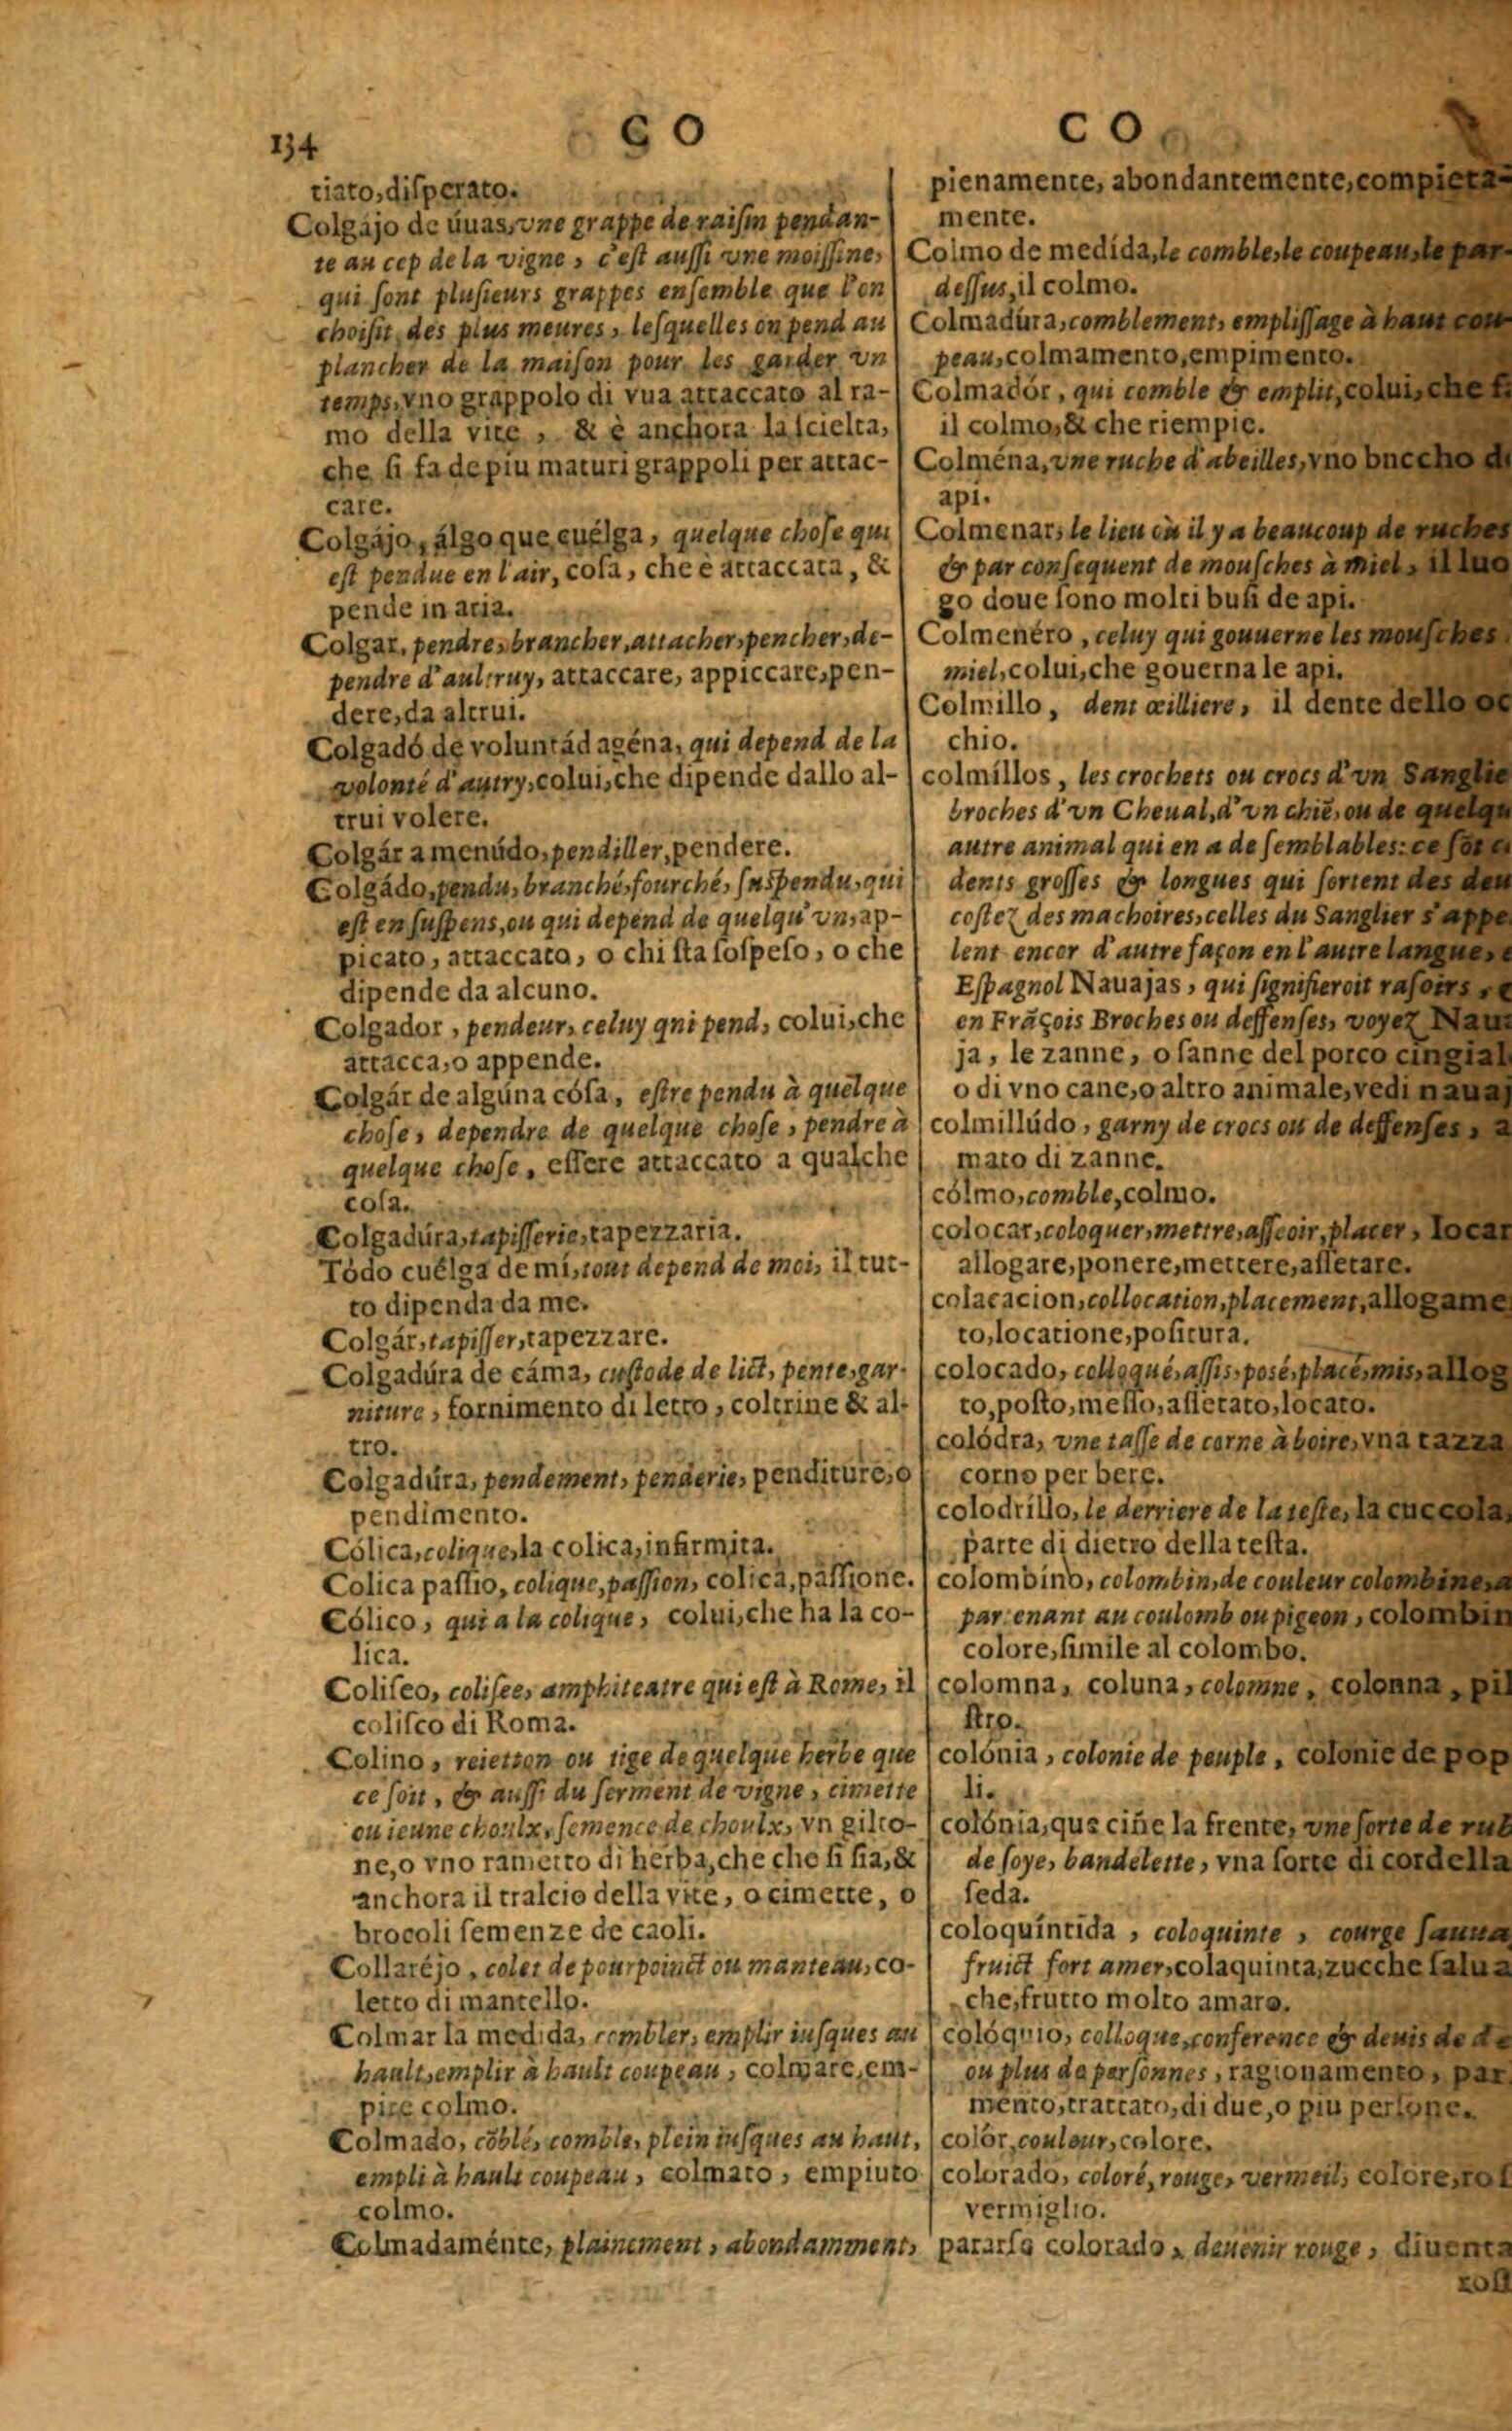 134
CO
CO
tiato,diſperato.
Colgájo de úuas,vne grappe de raiſin pendan-
te au cep de la vigne, c'eſt auſſi vne moiſſine,
qui ſont pluſieurs grappes enſemble que l'on
choiſit des plus meures, leſquelles on pend au
plancher de la maiſon pour les garder vn
temps,vno grappolo di vua attaccato al ra-
mo della vite, & è anchora la ſcielta,
che ſi fa de piu maturi grappoli per attac-
care.
Colgájo, álgo que cuélga, quelque choſe qui
eſt pendue en l'air, coſa, che è attaccata, &
pende in aria.
Colgar, pendre,brancher,attacher,pencher,de-
pendre d'aultruy, attaccare, appiccare,pen-
dere,da altrui.
Colgadó de voluntád agéna, qui depend de la
volonté d'autry,colui,che dipende dallo al-
trui volere.
Colgár a menúdo,pendiller,pendere.
Colgádo,pendu,branché,fourché,ſuſpendu,qui
eſt en ſuſpens,ou qui depend de quelqu'vn,ap-
picato, attaccato, o chi ſta ſoſpeſo, o che
dipende da alcuno.
Colgador, pendeur, celuy qni pend, colui,che
attacca,o appende.
Colgár de algúna cóſa, eſtre pendu à quelque
choſe, dependre de quelque choſe, pendre à
quelque choſe, eſſere attaccato a qualche
coſa.
Colgadúra,tapiſſerie,tapezzaria.
Tódo cuélga de mí,tout depend de moi, il tut-
to dipenda da me.
Colgár,tapiſſer,tapezzare.
Colgadúra de cáma, cuſtode de lict, pente,gar-
niture, fornimento di letto, coltrine & al-
tro.
Colgadúra, pendement, penderie, penditure,o
pendimento.
Cólica,colique,la colica,infirmita.
Colica paſſio, colique,paſſion, colica,paſſione.
Cólico, qui a la colique, colui,che ha la co-
lica.
Coliſeo, coliſee, amphiteatre qui eſt à Rome, il
coliſco di Roma.
Colino, reietton ou tige de quelque herbe que
ce ſoit, & auſſi du ſerment de vigne, cimette
ou ieune choulx,ſemence de choulx, vn gilto-
ne,o vno rametto di herba,che che ſi ſia,&
anchora il tralcio della vite, o cimette, o
brocoli ſemenze de caoli.
Collaréjo, colet de pourpoinct ou manteau,co-
letto di mantello.
Colmar la medida, combler, emplir iuſques au
hault,emplir à hault coupeau, colmare,em-
pire colmo.
Colmado, cõblé, comble, plein iuſques au haut,
empli à hault coupeau, colmato, empiuto
colmo.
Colmadaménte, plainement, abondamment,
pienamente, abondantemente,compieta-
mente.
Colmo de medída,le comble,le coupeau,le par-
deſſus,il colmo.
Colmadúra,comblement, empliſſage à haut cou-
peau,colmamento,empimento.
Colmadór, qui comble & emplit,colui,che f
il colmo,& che riempie.
Colména,vne ruche d'abeilles,vno bnccho d
api.
Colmenar, le lieu où il y a beaucoup de ruches
& par conſequent de mouſches à miel, il luo
go doue ſono molti buſi de api.
Colmenéro, celuy qui gouuerne les mouſches
miel,colui,che gouerna le api.
Colmillo, dent œilliere, il dente dello oc
chio.
colmíllos, les crochets ou crocs d'vn Sanglie
broches d'vn Cheual,d'vn chiẽ,ou de quelqu
autre animal qui en a de ſemblables: ce ſõt
dents groſſes & longues qui ſortent des deu
coſtez des machoires,celles du Sanglier s'appe
lent encor d'autre façon en l'autre langue,
Eſpagnol Nauajas, qui ſignifieroit raſoirs,
en Frãçois Broches ou deffenſes, voyez Naua
ja, le zanne, o ſanne del porco cingial
o di vno cane,o altro animale,vedi nauaj
colmillúdo, garny de crocs ou de deffenſes, a
mato di zanne.
cólmo,comble,colmo.
colocar,coloquer,mettre,aſſeoir,placer, locar
allogare,ponere,mettere,aſſetare.
colacacion,collocation,placement,allogame
to,locatione,poſitura.
colocado, colloqué,aſſis,posé,placé,mis,allog
to,poſto,meſſo,aſſetato,locato.
colódra, vne taſſe de corne à boire,vna tazza
corno per bere.
colodrillo, le derriere de la teſte, la cuccola,
parte di dietro della teſta.
colombino, colombin,de couleur colombine,a
partenant au coulomb ou pigeon, colombin
colore,ſimile al colombo.
colomna, coluna, colomne, colonna, pil
ſtro.
colónia, colonie de peuple, colonie de pop
li.
colónia,que ciñe la frente, vne ſorte de rub
de ſoye, bandelette, vna ſorte di cordella
ſeda.
coloquíntida, coloquinte, courge ſauua
fruict fort amer,colaquinta,zucche ſalua
che,frutto molto amaro.
colóquio, colloque,conference & deuis de de
ou plus de perſonnes, ragionamento, par
mento,trattato,di due,o piu perſone.
colór,couleur,colore.
colorado, coloré,rouge, vermeil, colore,roſ
vermiglio.
pararſe colorado, deuenir rouge, diuenta
roſſ